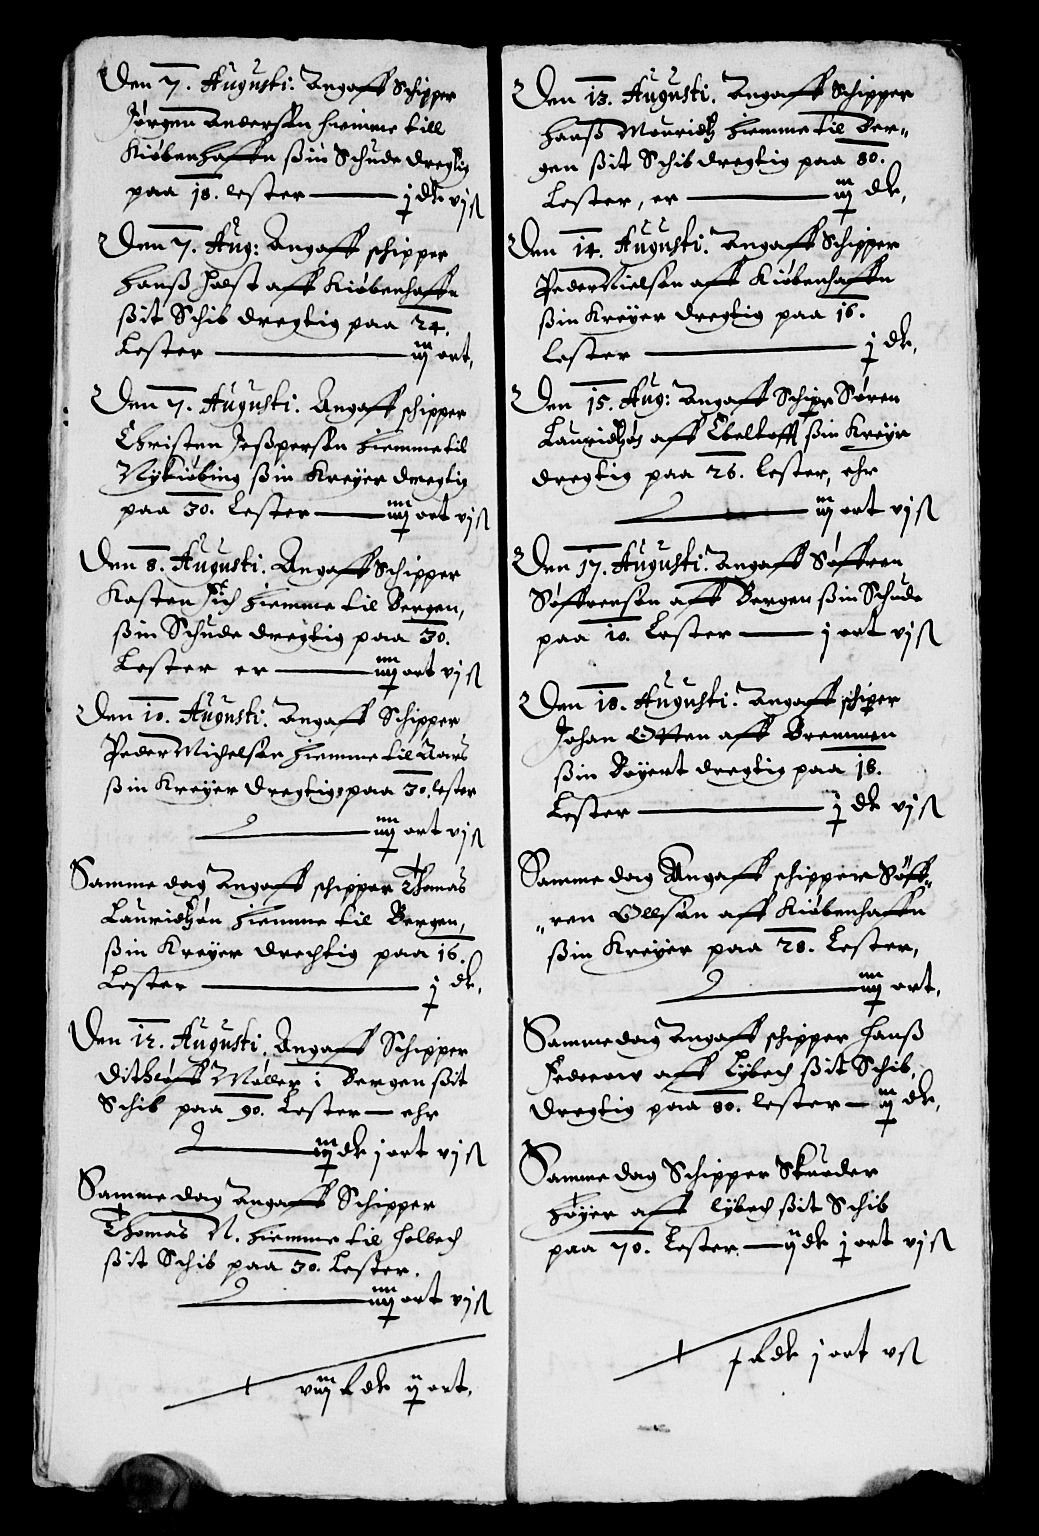 Den 7. Augusti. Angaff Schipper
Jørgen Andersen hiemme till
Kiøbenhaffn ßin Schude dregtig
paa 18. lester — j dlr vjß
Den 7. Aug: Angaff schipper
Hanß Holst aff Kiøbenhaffn
ßit Schib dregtig paa 24.
Lester — iij ort,
Den 7. Augusti. Angaff schipper
Christen Jeßpersen hiemme til
Nykiøbing ßin Kreyer dregtig
paa 30. Lester — iiij ort vjß
Den 8. Augusti. Angaff Schipper
Kasten hiemme til Bergen,
ßin Schude dregtig paa 30.
Lester er — iiij ort vjß
Den 10. Augusti. Angaff Schipper
Peder Michelsen hiemme til Aars
ßin Kreyer dregtig paa 30. lester
— iiij ort vjß
Samme dag Angaff schipper Thomas
Lauridtzøn hiemme til Bergen,
ßin Kreyer drechtig paa 16.
Lester — j dlr,
Den 12. Augusti. Angaff Schipper
Dithløff Møller i Bergen ßit
Schib paa 90. Lester — ehr
— iij dlr j ort vjß
Samme dag Angaff Schipper
Thomas N. hiemme til Holbech
ßit Schib paa 30. Lester.
— iiij ort vjß
viij dlr ij ort,
Den 13. Augusti. Angaff Schipper
Hanß Mouridtz hiemme til Ber-
gen ßit Schib dregtig paa 80.
Lester, er — iij dlr,
Den 14. Augusti. Angaff Schipper
Peder Nielsen aff Kiøbenhaffn
ßin Kreyer dregtig paa 16.
lester — j dlr,
Den 15. Aug: Angaff Schipr Søren
Lauridtzøn aff Ebeltofft ßin Kreyr
dregtig paa 26. lester, ehr
— iij ort vjß
Den 17. Augusti. Angaff Søffren
Søffrensen aff Bergen ßin Schude
paa 10. Lester — j ort vjß
Den 18. Augusti. Angaff schiper
Johan Otten aff Bremmen
ßin Boyert dregtig paa 18.
Lester — j dlr vjß
Samme dag Angaff schipper Søff-
ren Ollsen aff Kiøbenhaffn
ßin Kreyer paa 28. Lester,
— iiij ort,
Samme dag Angaff schipper Hanß
aff Lybech ßit Schib,
dregtig paa 80. lester — iij dlr,
Samme dag Schipper
Høyer aff lybech ßit Schib
paa 70. Lester. — ij dlr j ort vjß
dlr j ort vß